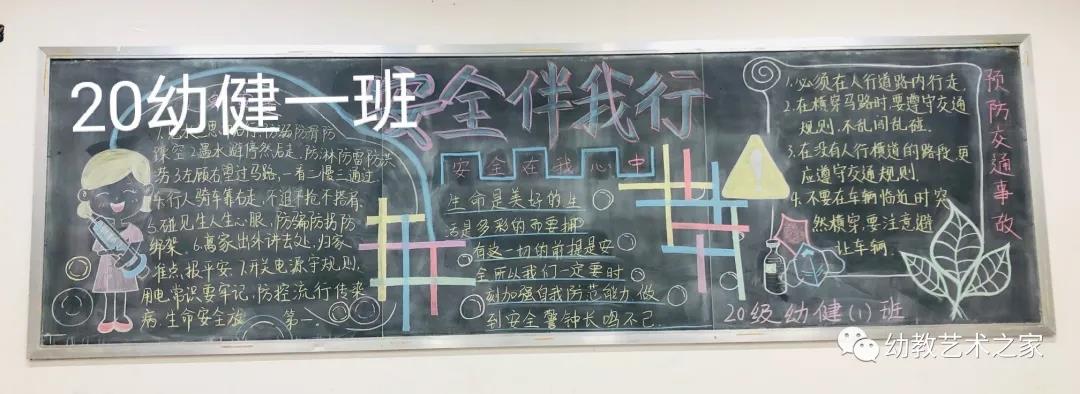 20幼健一班
安全伴我行
防骗防滑防
踩空.2.遇水避停然后走,防淋防雷防洪
3.左顾右望过马路,一看二慢三通过
4.行人骑车靠右走,不追不抢不搭肩.
5.碰见生人生心眼,防骗防拐防
绑架.6.离家出外讲去处,归家
准点报平安.7.开关电源守规则,
用电常识要牢记,防控流行传染
病.生命安全放 第一.
安全在我心中
生命是美好的生
活是多彩的而要拥
有这一切的前提是安
全所以我们一定要时
刻加强自我防范能力,做
到安全警钟长鸣不已.
1.必须在人行道路内行走.
2.在横穿马路时要遵守交通
规则,不乱闯乱碰.
3.在没有人行横道的路段,更
应遵守交通规则.
4.不要在车辆临近时突
然横穿,要注意避
让车辆.
预防交通事故
20级幼健(1)班
幼教艺术之家